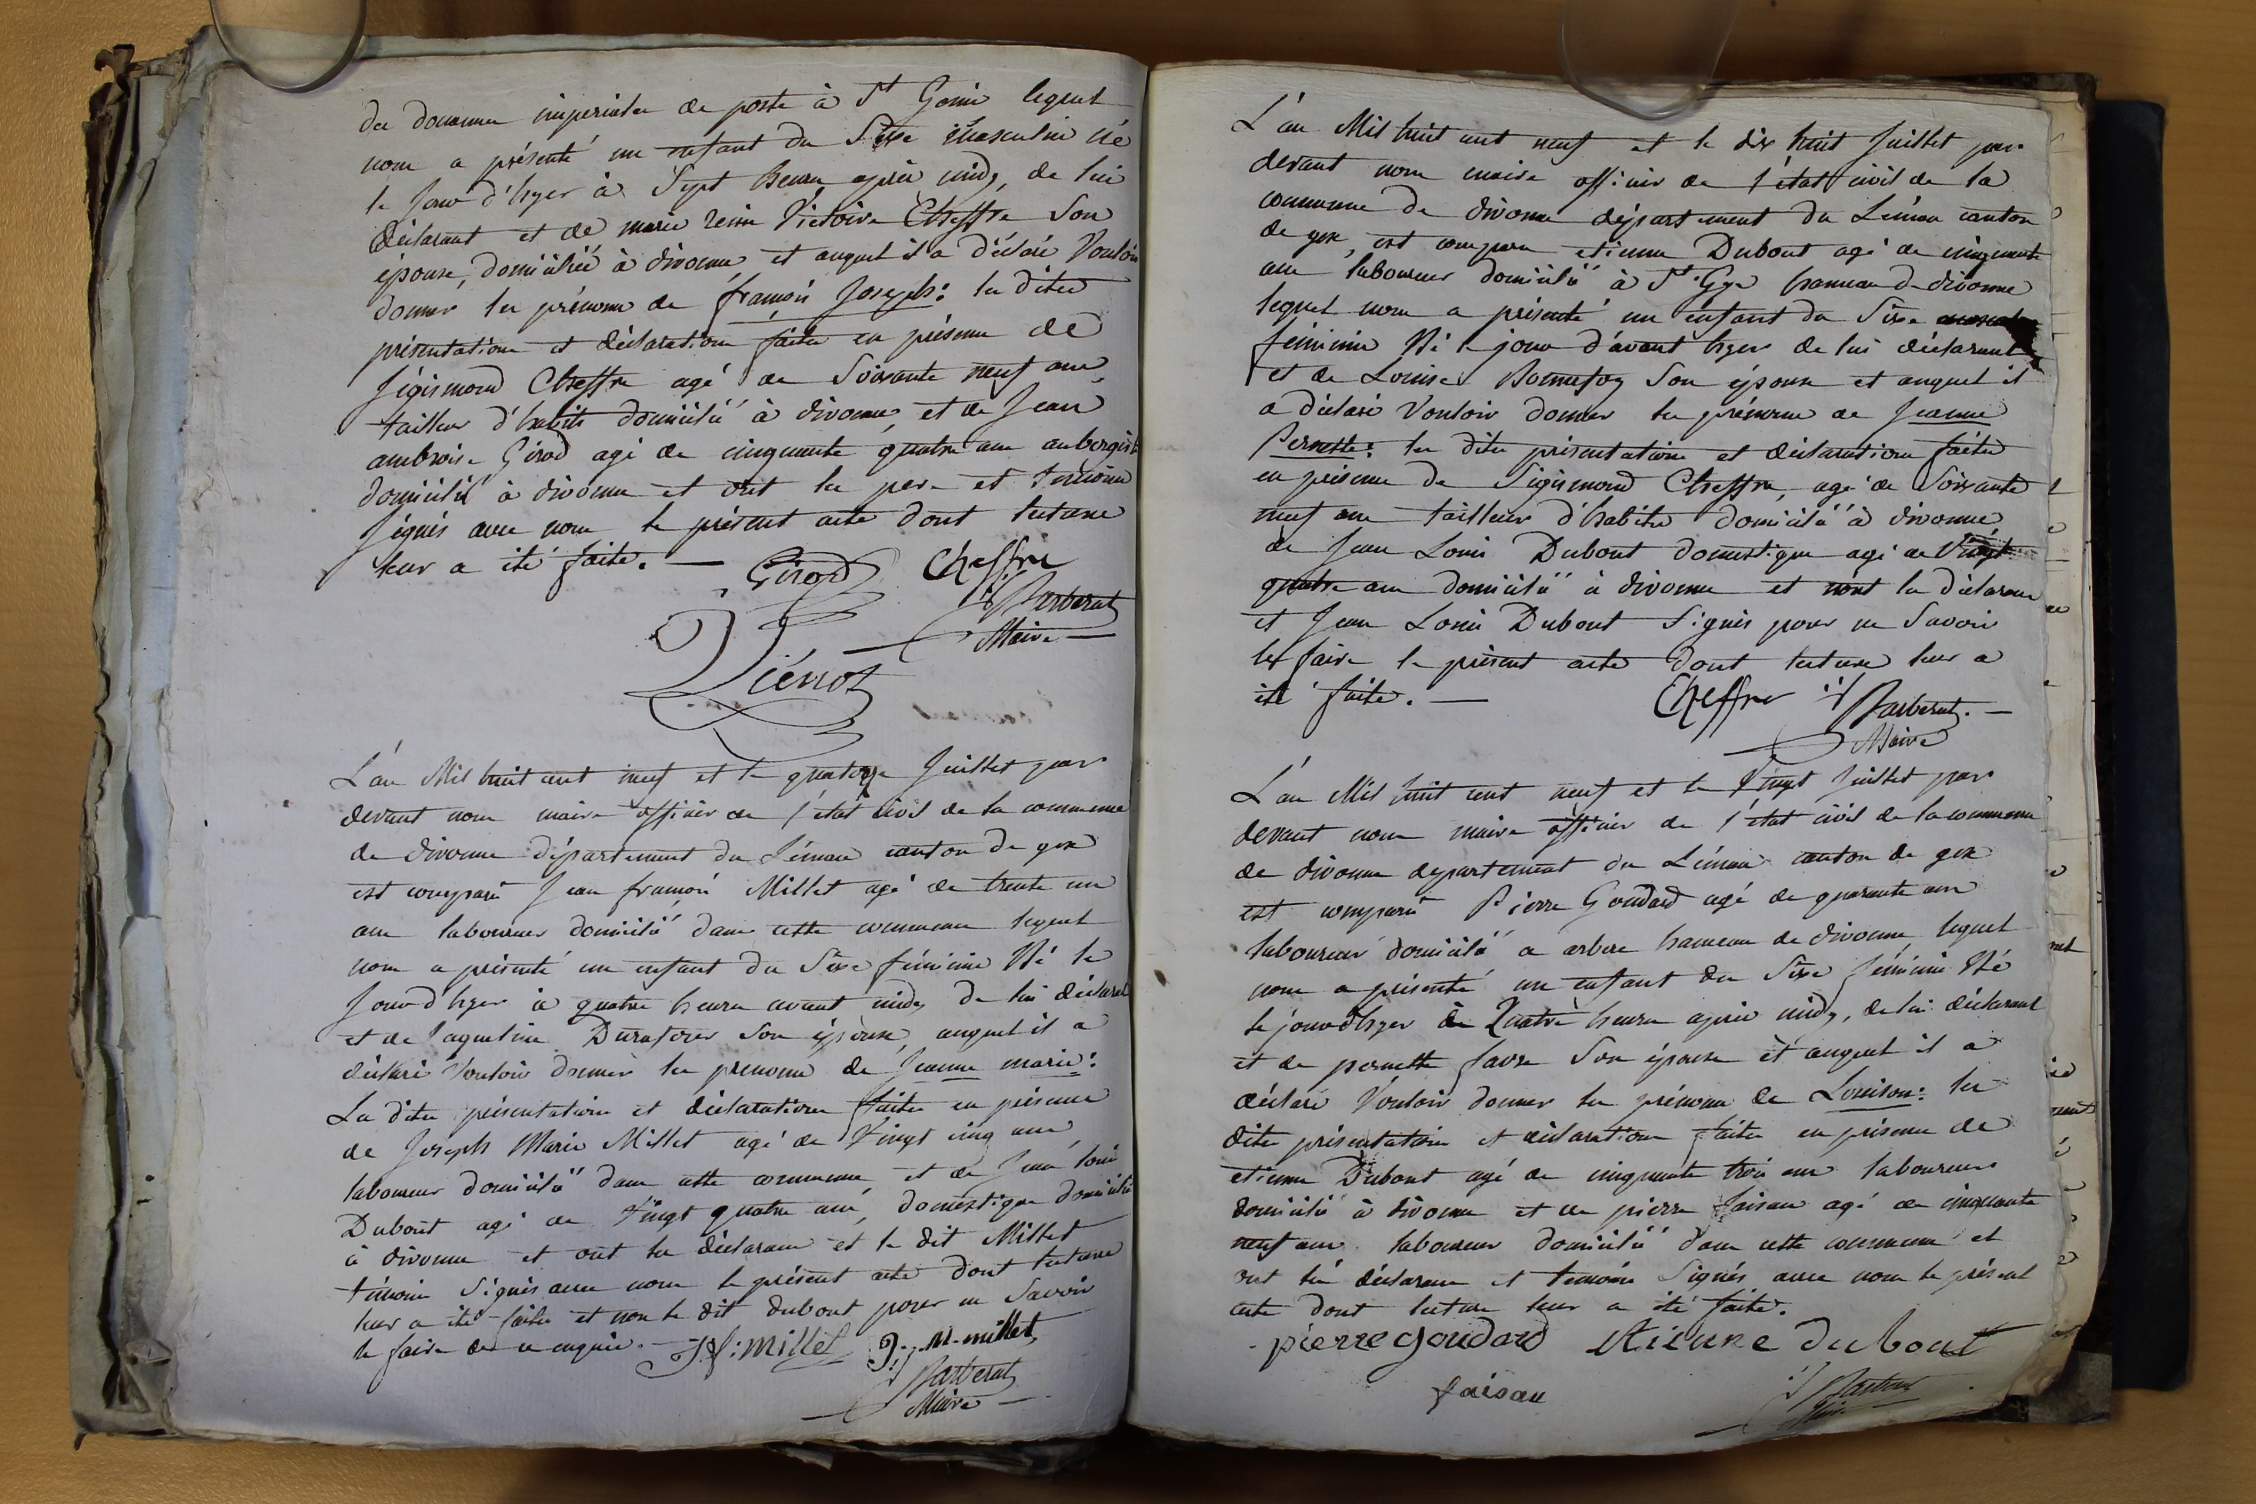 des douanes imperiales de poste à St Genis lequel
nous a présenté un enfant du Sexe masculin né
le jour d'hyer à Sept heures après midy, de lui
déclarant et de marie reine Victoire Cheffre Son
épouse, domiciliée à divonne et auquel il a déclaré Vouloir
donner les prénoms de françois Joseph: les dites
présentation et déclaration faites en présence de
Sigismond Cheffre agé de Soixante neuf ans,
tailleur d'habits domicilié à divonne, et de Jean
ambroise Girod agé de cinquante quatre ans aubergiste
domicilié à divonne et ont les pere et temoins
Signés avec nous le présent acte dont lecture
leur a été faite. — Girod Cheffre
Barberat
Maire
Piérrot
L'an Mil huit cent neuf et le quatorze Juillet par
devant nous maire officier de l'état civil de la commune
de divonne département du Léman canton de gex
est comparu Jean françois Millet agé de trente un
ans laboureur domicilié dans cette commune lequel
nous a présenté un enfant du Sexe féminin Né le
Jour d'hyer à quatre heures avant midy de lui déclarant
et de Jaqueline Durafour Son épouse, auquel il a
déclaré Vouloir donner les prenoms de Jeanne marie:
La dites présentation et déclaration faites en présence
de Joseph Marie Millet agé de Vingt cinq ans,
laboureur domicilié dans cette commune, et de Jean louis
Dubout agé de Vingt quatre ans, domestique domicilié
à divonne et ont les déclarans et le dit Millet
témoin Signés avec nous le présent acte dont lecture
leur a été faites et non le dit dubout pour ne Savoir
le faire de ce enquis. — J f: millet J. M. millet
Barberat
Maire
L'an Mil huit cent neuf et le dix huit Juillet par
devant nous maire officier de l'état civil de la
commune de divonne département du Léman canton
de gex, est comparu etienne Dubout agé de cinquante
ans laboureur domicilié à St Gyx hameau de divonne
lequel nous a présenté un enfant du Sexe
féminin Né le jour d'avant hyer de lui déclarant
et de Louise Bonnefoy Son épouse et auquel il
a déclaré Vouloir donner les prénoms de Jeanne
Pernette: les dites présentation et déclaration faites
en présence de Sigismond Cheffre, agé de Soixante
neuf ans tailleur d'habits domicilié à divonne
de Jean Louis Dubout domestique agé de Vingt
quatre ans domicilié à divonne et n'ont les déclarans
et Jean Louis Dubout Signés pour ne Savoir
le faire le présent acte dont lecture leur a
été faite. — Cheffre Barberat. —
Maire
L'an Mil huit cent neuf et le Vingt Juillet par
devant nous maire officier de l'état civil de la commune
de divonne departement du Léman canton de gex
est comparu Pierre Goudard agé de quarante ans
laboureur domicilié a arbere hameau de divonne lequel
nous a présenté un enfant du Sexe féminin Né
le jour d'hyer à Quatre heures après midy, de lui déclarant
et de pernette favre Son épouse et auquel il a
déclaré Vouloir donner les prénoms de Louison: les
dites présentation et déclaration faites en présence de
etienne Dubout agé de cinquante trois ans laboureur
domicilié à divonne et de pierre faisan agé de cinquante
neuf ans laboureur domicilié dans cette commune et
ont les déclarans et temoins Signés avec nous le présent
acte dont lecture leur a été faite.
pierre goudard Etienne dubout
faisan
Barberat
Maire